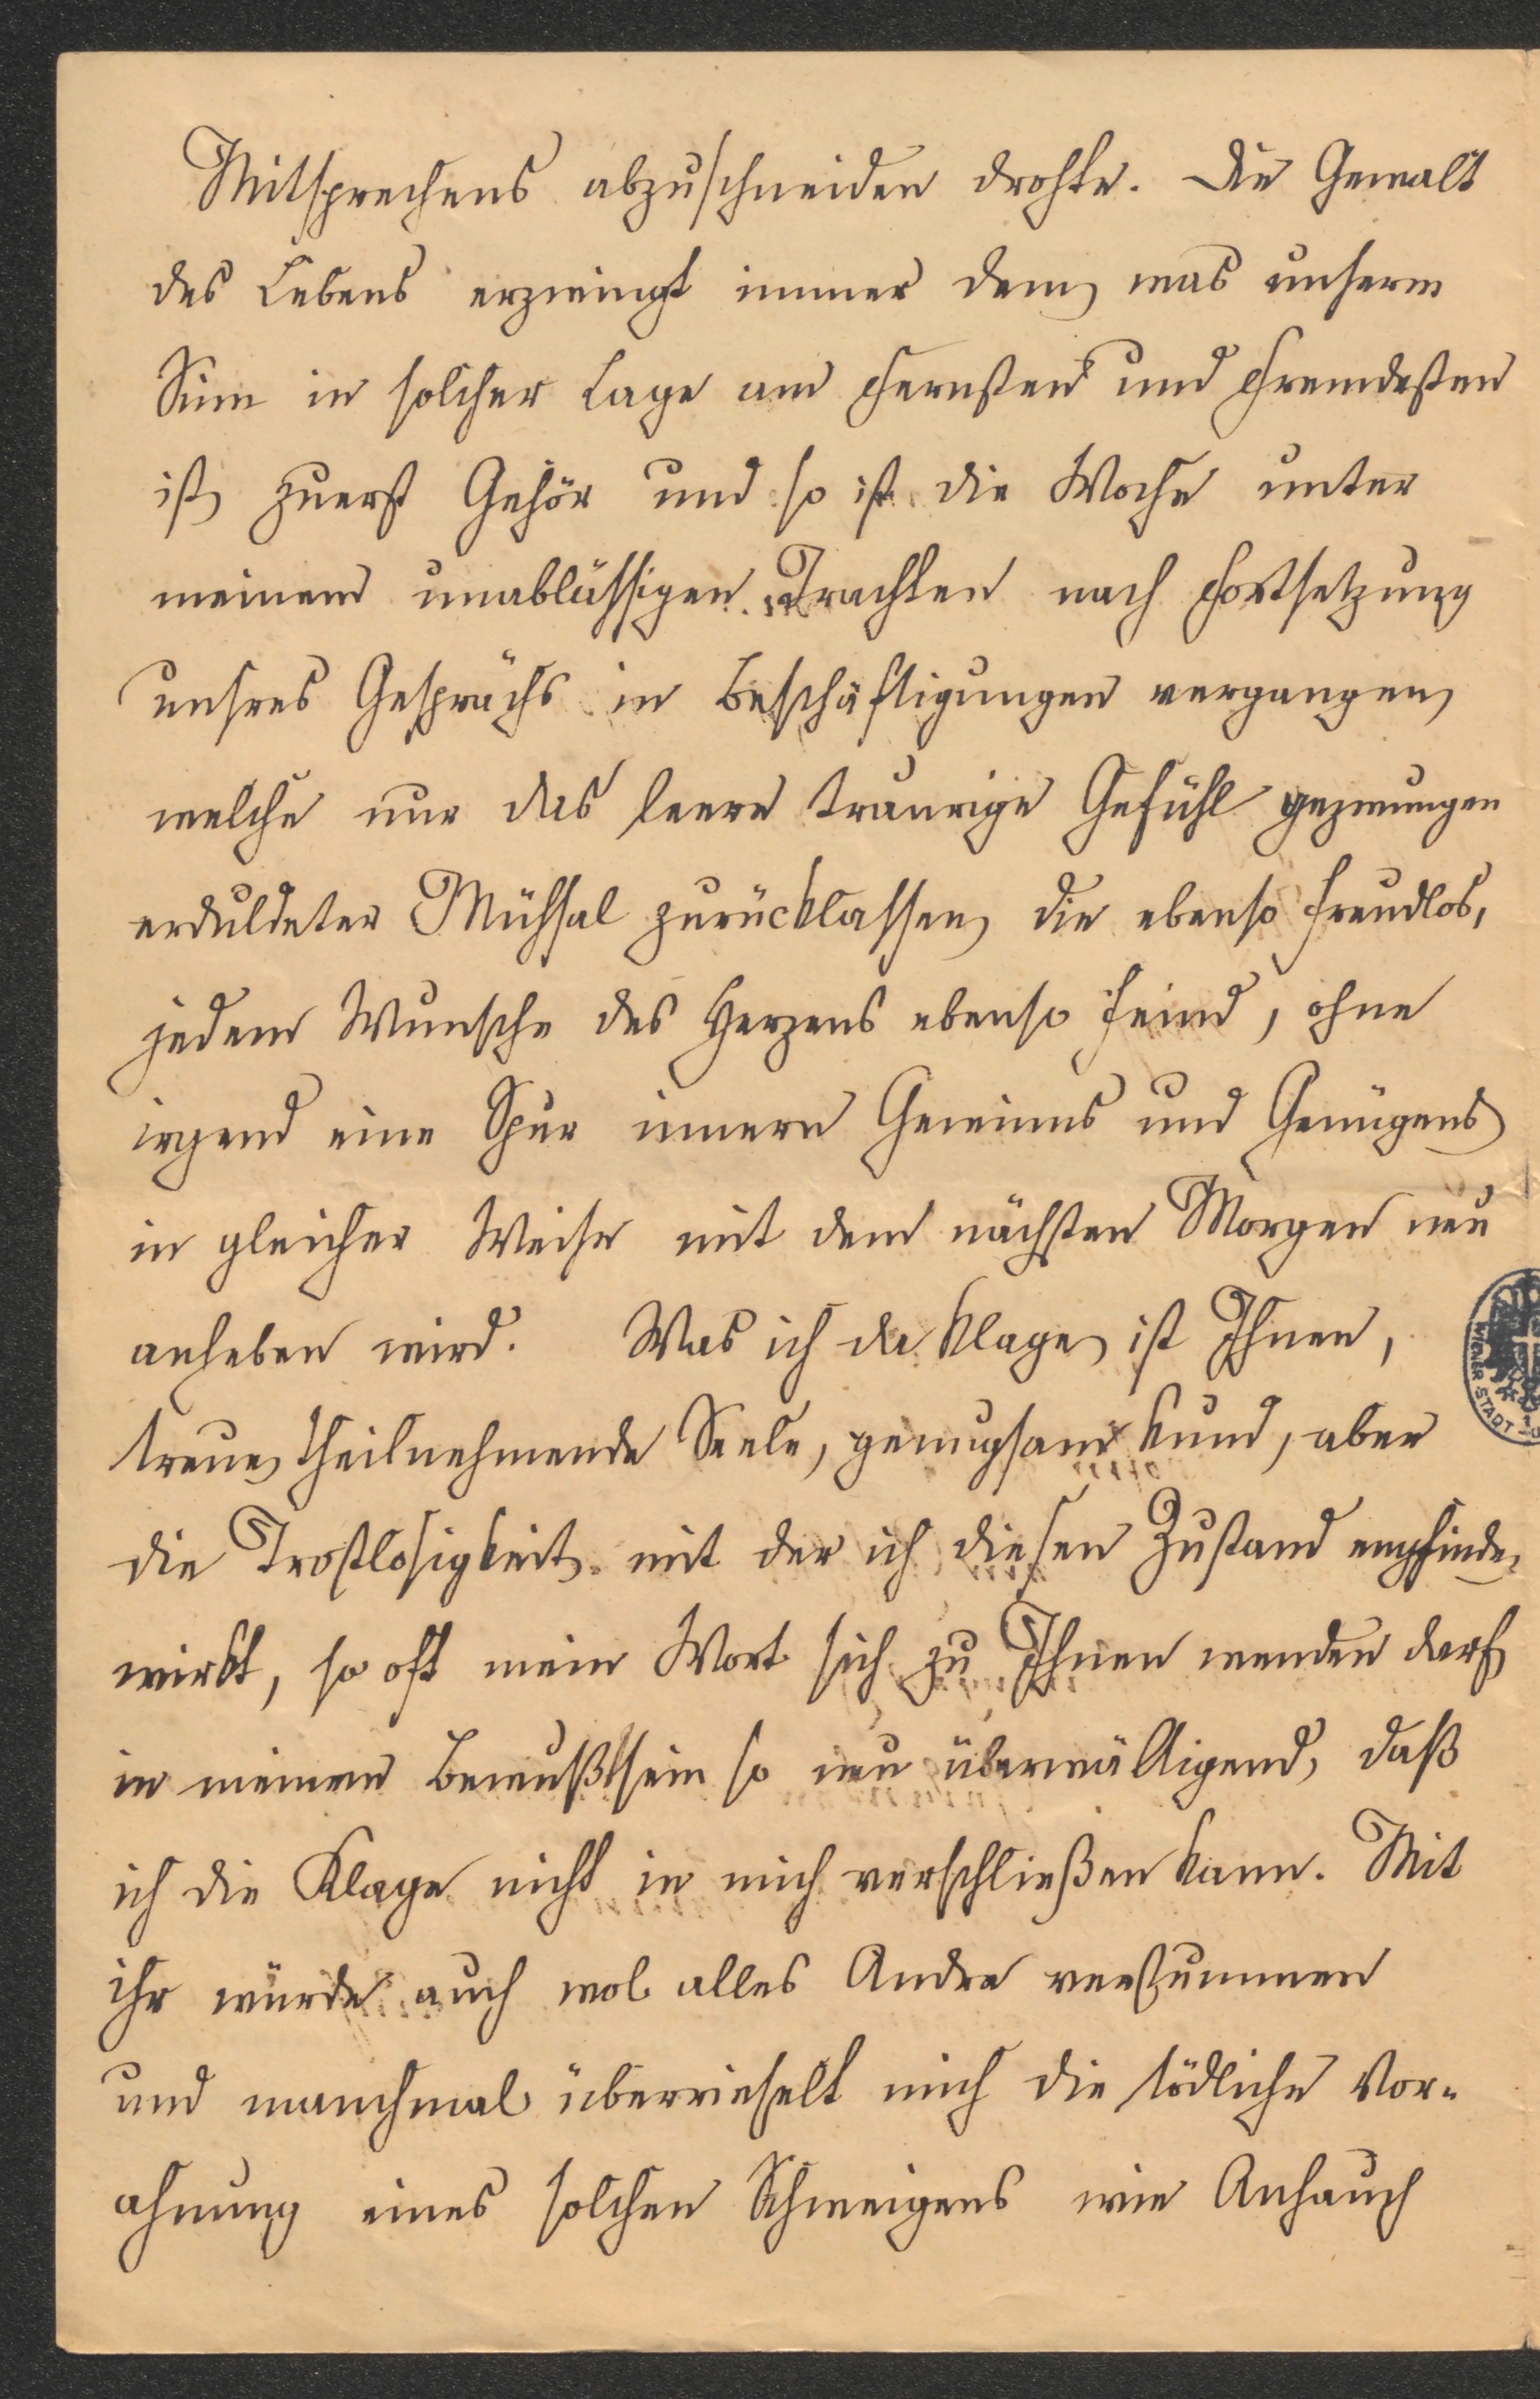 Mitsprechens abzuschneiden drohte. Die Gewalt
des Lebens erzwingt immer dem, was unserm
Sinn in solcher Lage am fernsten und fremdesten
ist, zuerst Gehör und so ist die Woche unter
meinem unablässigen Trachten nach Fortsetzung
unsres Gesprächs in Beschäftigungen vergangen,
welche nur das leere traurige Gefühl gezwungen
erduldeter Mühsal zurücklassen, die ebenso freudlos,
jedem Wunsche des Herzens ebenso feind, ohne
irgend eine Spur innern Gewinns und Genügens,
in gleicher Weise mit dem nächsten Morgen neu
anheben wird. Was ich da klage, ist Ihnen,
treue, theilnehmende Seele, genugsam kund, aber
die Trostlosigkeit, mit der ich diesen Zustand empfinde,
wirkt, so oft mein Wort sich zu Ihnen wenden darf,
in meinem Bewußtsein so neu überwältigend, daß
ich die Klage nicht in mich verschließen kann. Mit
ihr würde auch wol alles Andre verstummen
und manchmal überrieselt mich die tödliche Vor-
ahnung eines solchen Schweigens wie Anhauch
WIENER STADT